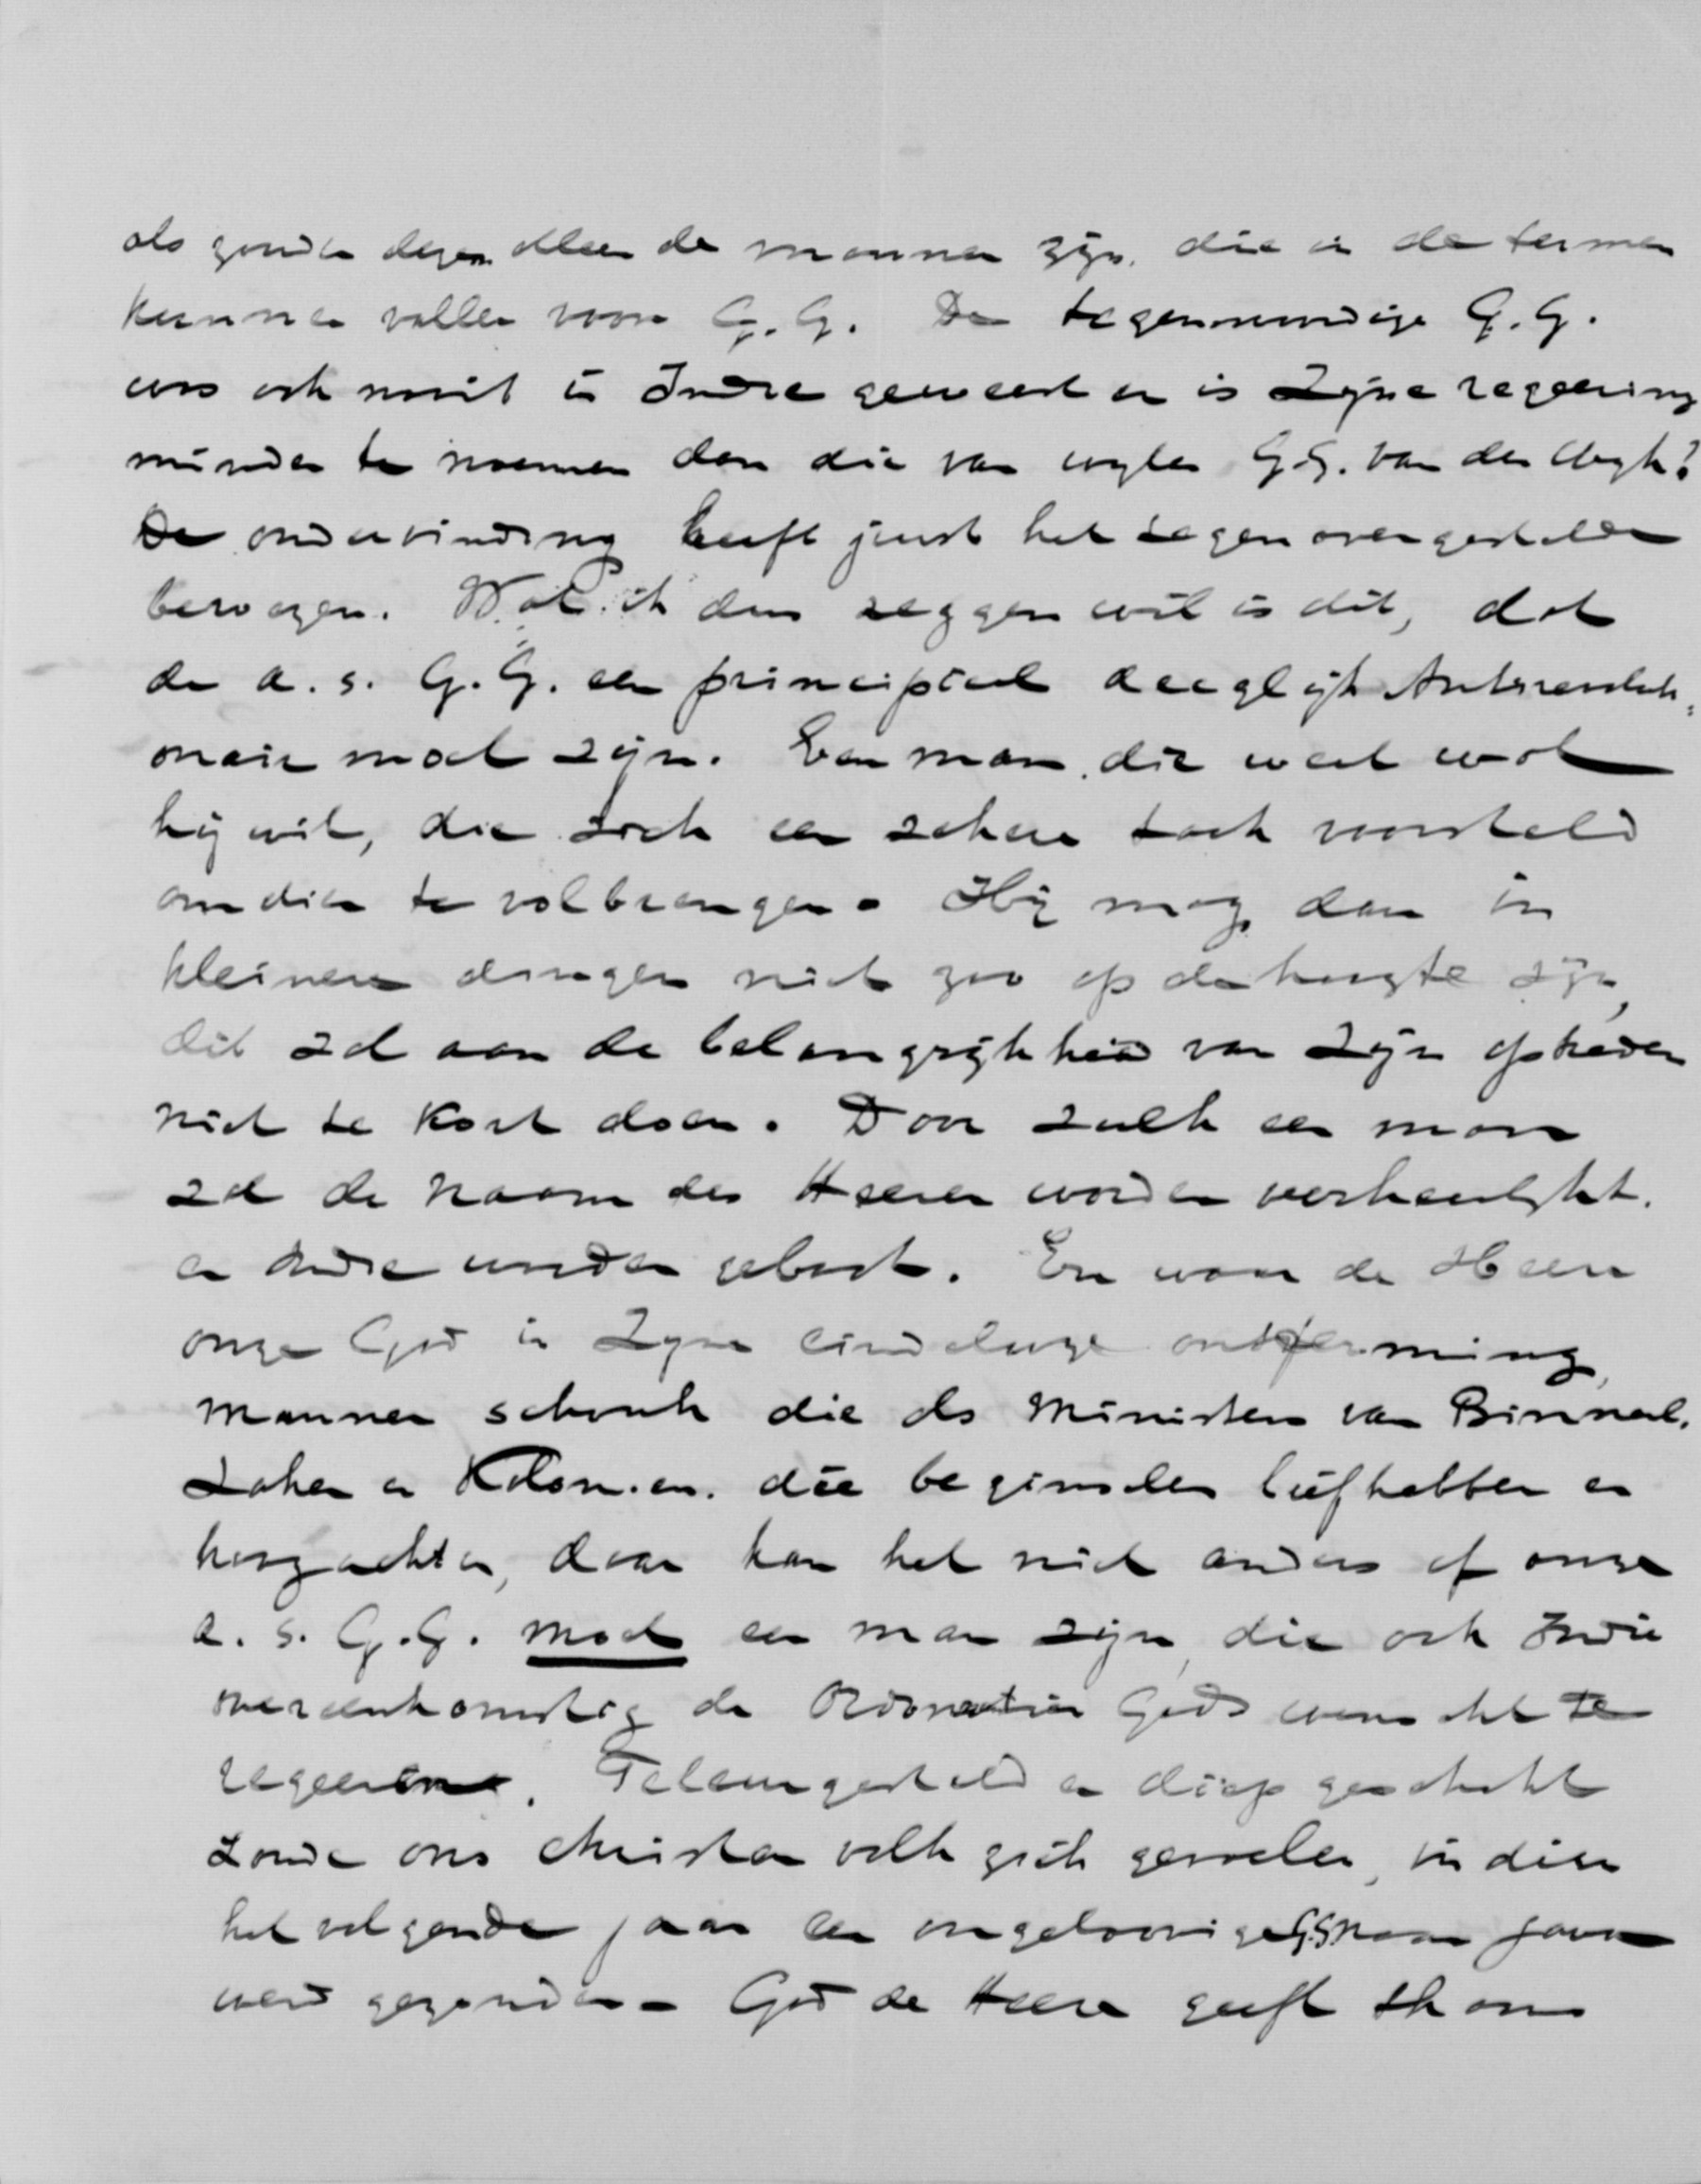 als zouden dezen alleen de mannen zijn die in de termen
kunnen vallen voor G.G. De tegenwoordige G.G.
was ook nooit in Indie geweest en is Zijne regeering
minder te noemen dan die van wijlen G.G. van der Wyk?
De ondervinding heeft juist het tegenovergestelde
bewezen. Wat ik dan zeggen wil is dit, dat
de a.s. G.G. een principieel deeglijk Antirevoluti-
onair moet zijn. Een man die weet wat
hij wil, die zich een zekere taak voorsteld
om die te volbrengen. Hij mag dan in
kleinere dingen niet zoo op de hoogte zijn,
dit zal aan de belangrijkheid van Zijn optreden
niet te kort doen. Door zulk een man
zal de naam des Heeren worden verheerlijkt.
en Indie worden gebaat. En waar de Heere
onze God in Zijne eindelooze ontferming,
mannen schonk die als Ministers van Binnenl.
Zaken en Kolonien. die beginselen liefhebben en
hoogachten, daar kan het niet anders of onze
a.s. G.G. moet een man zijn, die ook Indie
overeenkomstig de Ordonantien Gods wenscht te
regeeren. Teleurgesteld en diep geschokt
zoude ons Christen volk zich gevoelen, indien
het volgende jaar een ongeloovige G.G. naar Java
werd gezonden - God de Heere geeft th ons